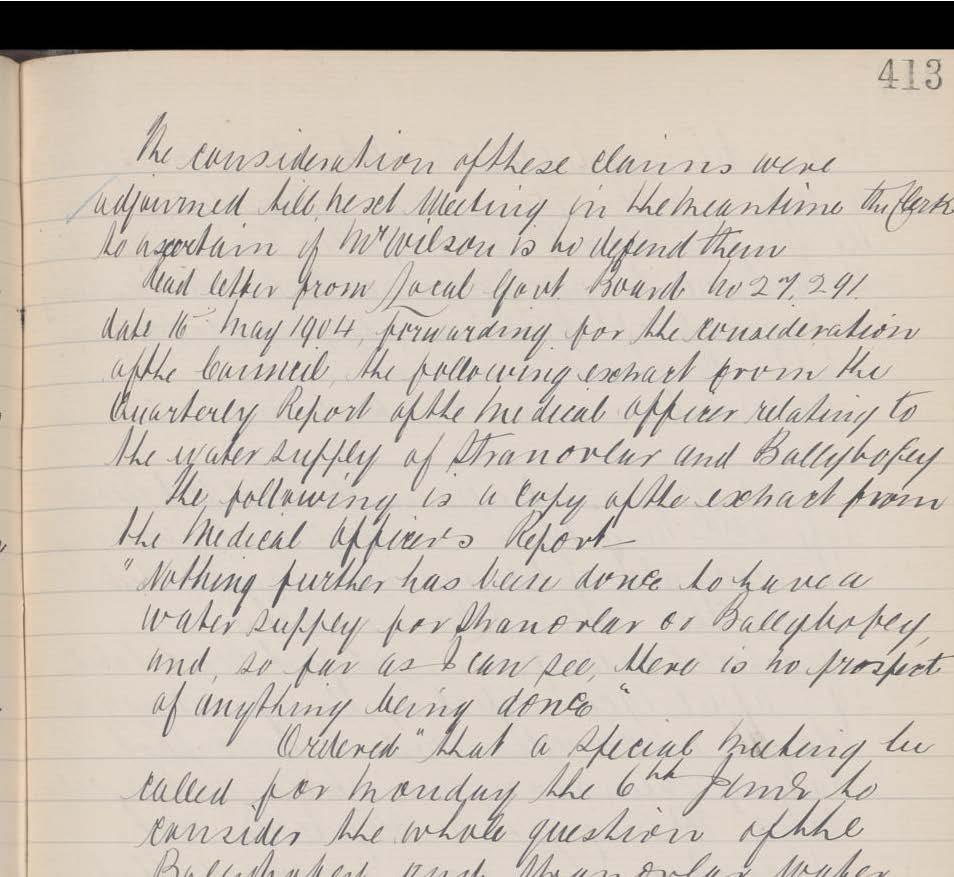 413
The consideration of these claims were
adjourned till next Meeting in the meantime the Clerk
to ascertain if Mr Wilson is to defend them
Read letter from Local Govt. Board No 27,291
date 16 May 1904, forwarding for the consideration
of the Council, the following extract from the
Quarterly Report of the Medical Officer relating to
the water supply of Stranorlar and Ballybofey
The following is a Copy of the extract from
the Medical Officers Report—
"Nothing further has been done to have a
water supply for Stranorlar or Ballybofey,
and, so far as I can see, there is no prospect
of anything being done"
Ordered "that a special meeting be
called for Monday the 6th June to
consider the whole question of the
Ballybofey and Stranorlar water